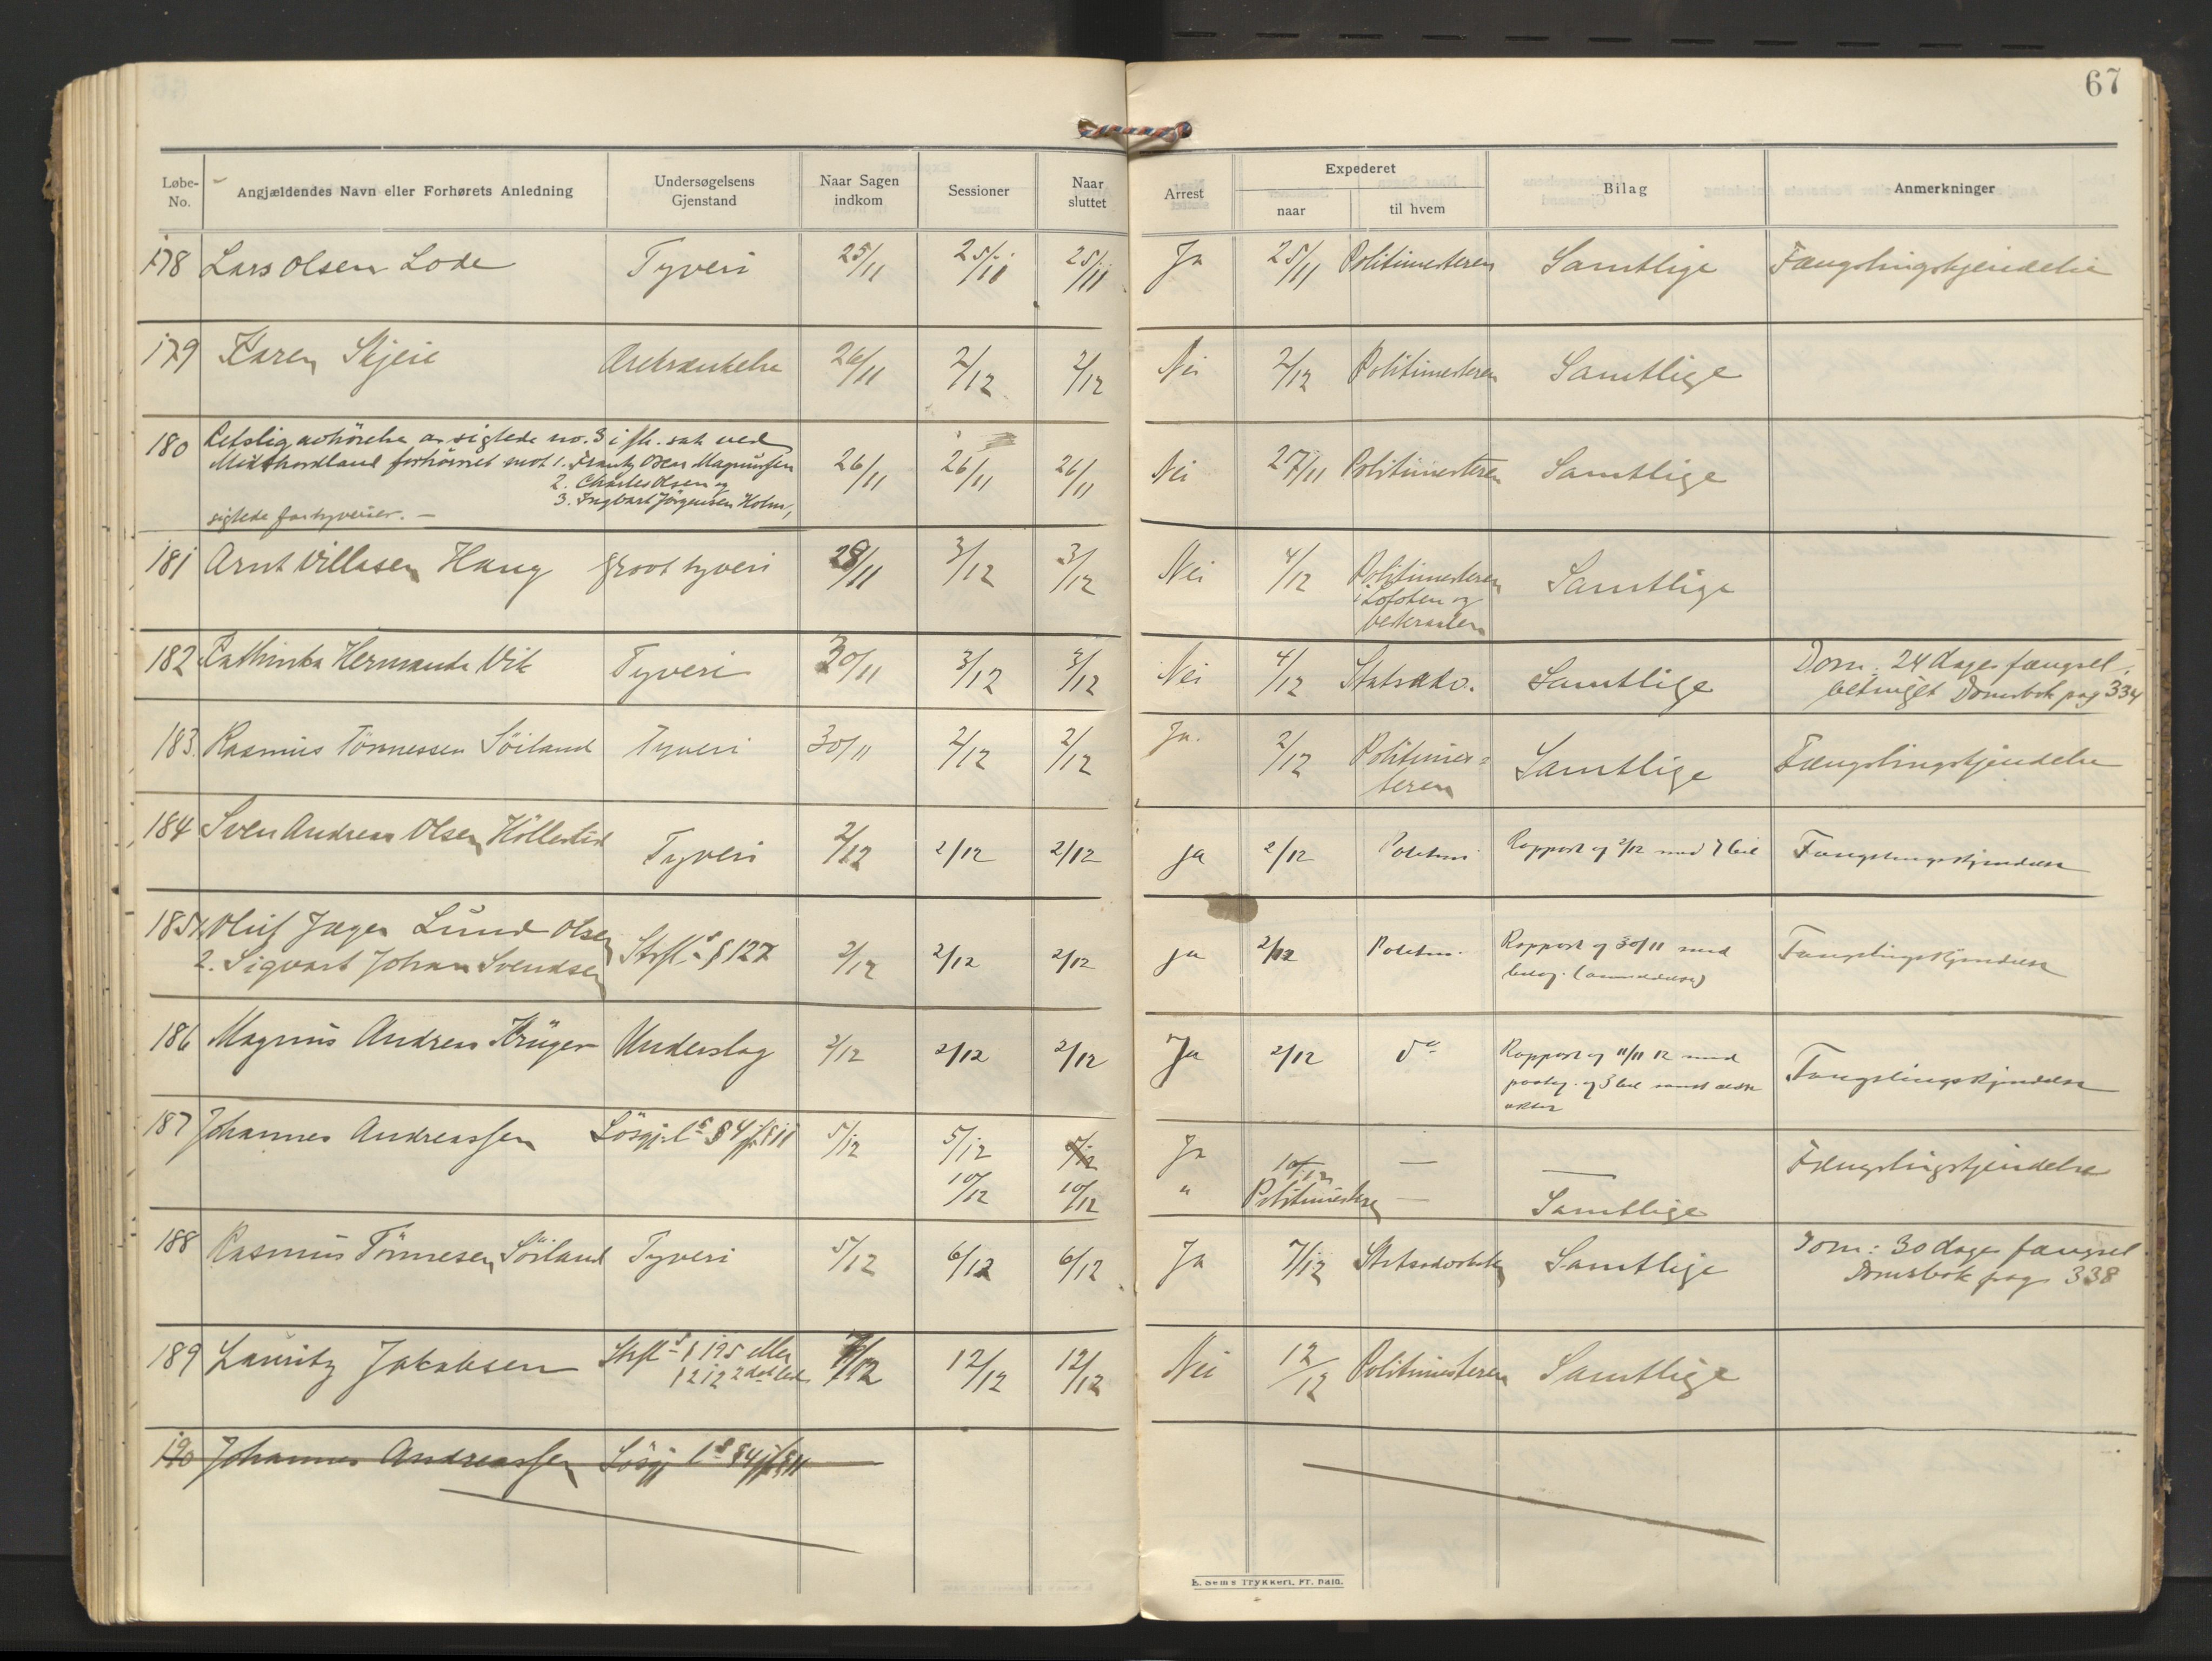 67
Løbe-No. Angjældendes Navn eller Forhørets Anledning Undersøgelsens Gjenstand Naar Sagen indkom Sessioner Naar sluttet Arrest Expederet naar til hvem Bilag Anmerkninger
178 Lars Olsen Lode Tyveri 25/11 25/11 25/11 Ja 25/11 Politimesteren Samtlige Fængslingskjendelse
179 Karen Skjeie Ærekrænkelse 26/11 2/12 2/12 Nei 2/12 Politimesteren Samtlige
180 Retslig avhörelse av sigtede no. 3 i fh. sak ved
Midthordland forhörsret mot 1. Frantz Osen Magnussen 26/11 26/11 26/11 Nei 27/11 Politimesteren Samtlige
2. Charles Olsen og
3. Ingvart Jörgensen Holm,
sigtede for tyverier. —
181 Arnt Villasen Haug grovt tyveri 28/11 3/12 3/12 Nei 4/12 Politimesteren Samtlige
i Lofoten og
Vesteraalen
182 Cathinka Hermanda Vik Tyveri 30/11 3/12 3/12 Nei 4/12 Statsadv. Samtlige Dom: 24 dages fængsel
betinget Domsbok pag 334
183. Rasmus Tönnessen Söiland Tyveri 30/11 2/12 2/12 Ja. 2/12 Politimes= Samtlige Fængslingskjendelse
teren
184 Sven Andreas Olsen Höllestad Tyveri 2/12 2/12 2/12 ja 2/12 Politimi Rapport af 2/12 med 7 bil Fængslingskjendelse
185 1. Oluf Jæger Lund Olsen Strfl.s § 127 2/12 2/12 2/12 ja 2/12 Politim. Rapport af 30/11 med Fængslingskjendelse
2. Sigvart Johan Svendsen bilag. (anmeldelse)
186 Magnus Andreas Krüger Underslag 2/12 2/12 2/12 Ja 2/12 do Rapport af 11/11 12 med Fængslingskjendelse
paateg. og 3 bil samt ældre
akter
187 Johannes Andreassen Lösgj. ls § 4 jf. § 11 5/12 5/12 5/12 Ja — — Fængslingskjendelse
10/12 10/12 " 10/12 Politimesteren — Samtlige
188 Rasmus Tönnesen Söiland Tyveri 5/12 6/12 6/12 Ja 7/12 Statsadvokaten Samtlige Dom: 30 dages fængsel
Domsbok pag 338
189 Lauritz Jakobsen Strfl.s § 195 eller 7/12 12/12 12/12 Nei 12/12 Politimesteren Samtlige
§ 212 2det led
190 Johannes Andreassen Lösgj ls § 4 jf § 11
E. Sems Trykkeri, Fr. hald.